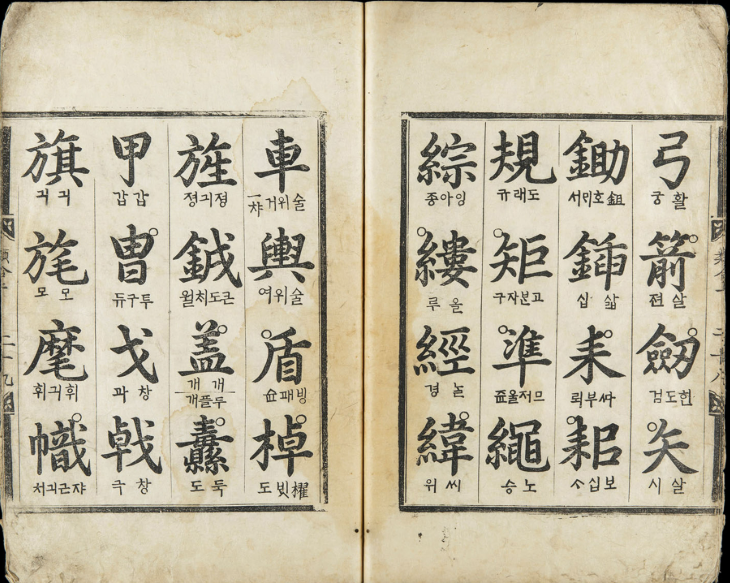 弓
활 궁
箭
살 젼
劒
환도 검
矢
살 시
鋤
鉏 호미 서
鍤
삷 삽
耒
ᄯᅡ부 뢰
耜
보십 ᄉᆞ
規
도래 규
矩
고분자 구
準
므저울 쥰
繩
노 승
綜
잉아 종
縷
올 루
經
ᄂᆞᆯ 경
緯
씨 위
車
술위 거 一챠
輿
술위 여
盾
방패 슌
棹
櫂 빗 도
旌
졍긔 졍
鉞
근도치 월
盖
개 개
두플 개
纛
둑 도
甲
갑 갑
冑
투구 듀
戈
창 과
戟
창 극
旗
긔 긔
旄
모 모
麾
휘긔 휘
幟
쟈근긔 치